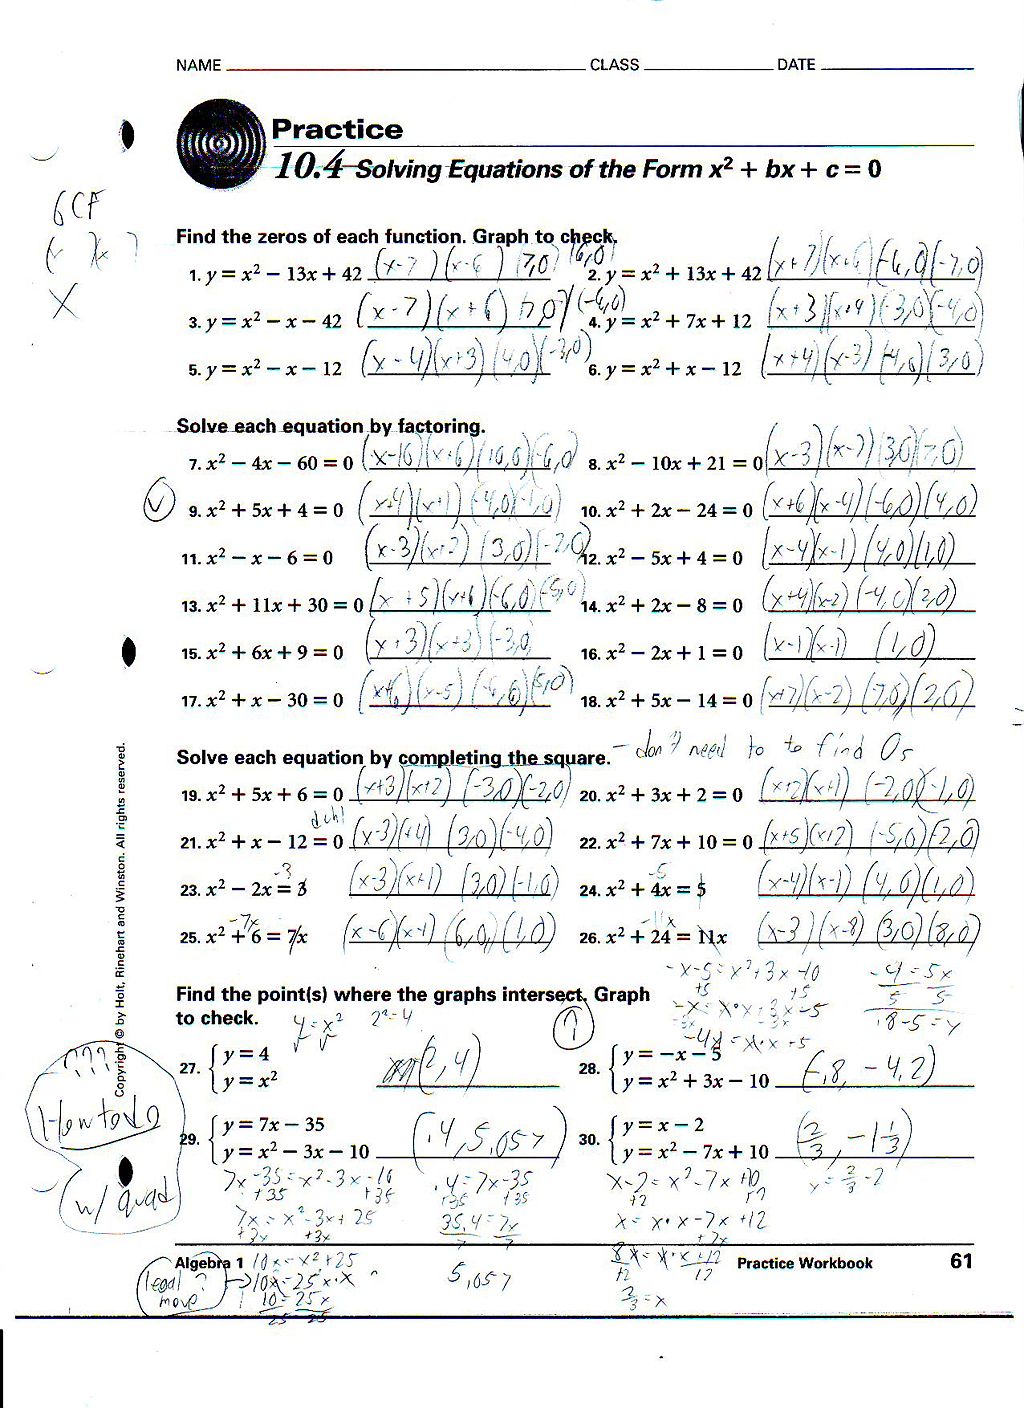 NAME CLASS DATE
Practice
10.4 Solving Equations of the Form x² + bx + c = 0
GCF
(x )(x )
X
Find the zeros of each function. Graph to check.
1. y = x² − 13x + 42 (x-7)(x-6) (7,0) (6,0)
2. y = x² + 13x + 42 (x+7)(x+6)(-6,0)(-7,0)
3. y = x² − x − 42 (x-7)(x+6) (7,0) (-6,0)
4. y = x² + 7x + 12 (x+3)(x+4)(-3,0)(-4,0)
5. y = x² − x − 12 (x-4)(x+3)(4,0)(-3,0)
6. y = x² + x − 12 (x+4)(x-3)(-4,0)(3,0)
Solve each equation by factoring.
7. x² − 4x − 60 = 0 (x-10)(x+6)(10,0)(-6,0)
8. x² − 10x + 21 = 0 (x-3)(x-7)(3,0)(7,0)
9. x² + 5x + 4 = 0 (x+4)(x+1)(-4,0)(-1,0)
10. x² + 2x − 24 = 0 (x+6)(x-4)(-6,0)(4,0)
11. x² − x − 6 = 0 (x-3)(x+2)(3,0)(-2,0)
12. x² − 5x + 4 = 0 (x-4)(x-1)(4,0)(1,0)
13. x² + 11x + 30 = 0 (x+5)(x+6)(-6,0)(-5,0)
14. x² + 2x − 8 = 0 (x+4)(x-2)(-4,0)(2,0)
15. x² + 6x + 9 = 0 (x+3)(x+3)(-3,0)
16. x² − 2x + 1 = 0 (x-1)(x-1) (1,0)
17. x² + x − 30 = 0 (x+6)(x-5)(-6,0)(5,0)
18. x² + 5x − 14 = 0 (x+7)(x-2)(7,0)(2,0)
Solve each equation by completing the square. - don't need to to find 0s
19. x² + 5x + 6 = 0 (x+3)(x+2)(-3,0)(-2,0)
20. x² + 3x + 2 = 0 (x+2)(x+1)(-2,0)(-1,0)
duh!
21. x² + x − 12 = 0 (x-3)(+4)(3,0)(-4,0)
22. x² + 7x + 10 = 0 (x+5)(x+2)(-5,0)(-2,0)
-3
23. x² − 2x = 3 (x-3)(x+1)(3,0)(-1,0)
-5
24. x² + 4x = 5 (x-4)(x-1)(4,0)(1,0)
-7x
25. x² + 6 = 7x (x-6)(x-1)(6,0)(1,0)
-11x
26. x² + 24 = 11x (x-3)(x-8)(3,0)(8,0)
-x-5=x²+3x-10
+5 +5
-x=x·x+3x-5
-3x -3x
-4x=x·x-5
-4=5x
5 5
.8-5=y
Find the point(s) where the graphs intersect. Graph
to check.
y=x² 2²=4
27. y = 4
y = x² (2,4)
28. y = −x − 5
y = x² + 3x − 10 (-.8, -4.2)
???
How to do
w/ quad
29. y = 7x − 35
y = x² − 3x − 10 (.4, 5.057)
30. y = x − 2
y = x² − 7x + 10 (2/3, -1 1/3)
7x-35=x²-3x-10
+35 +35
7x=x²-3x+25
+3x +3x
10x=x²+25
10x=25x·x
10=25x
25 25
legal move?
.4=7x-35
+35 +35
35.4=7x
7 7
5.057
x-2=x²-7x+10
+2 +2
x=x·x-7x+12
+7x
8x=x·x+12
+12 12
2/3=x
y=2/3-2
Copyright © by Holt, Rinehart and Winston. All rights reserved.
Algebra 1 Practice Workbook 61